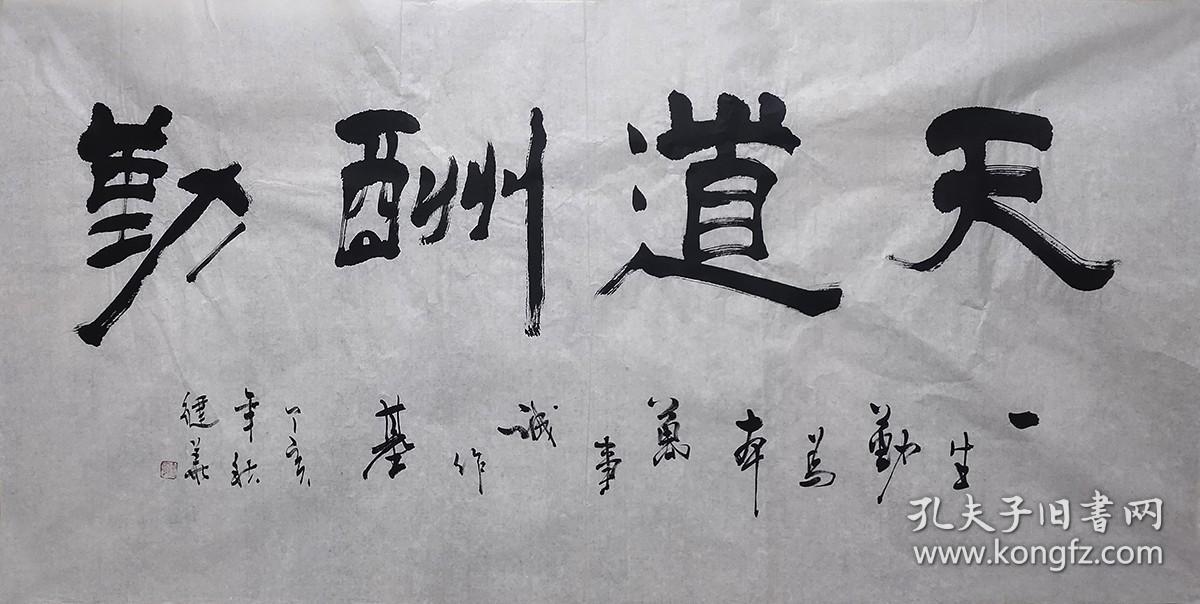 天道酬勤
一生勤為本萬事誠作基
丁亥
年秋
健華
孔夫子旧書网
www.kongfz.com